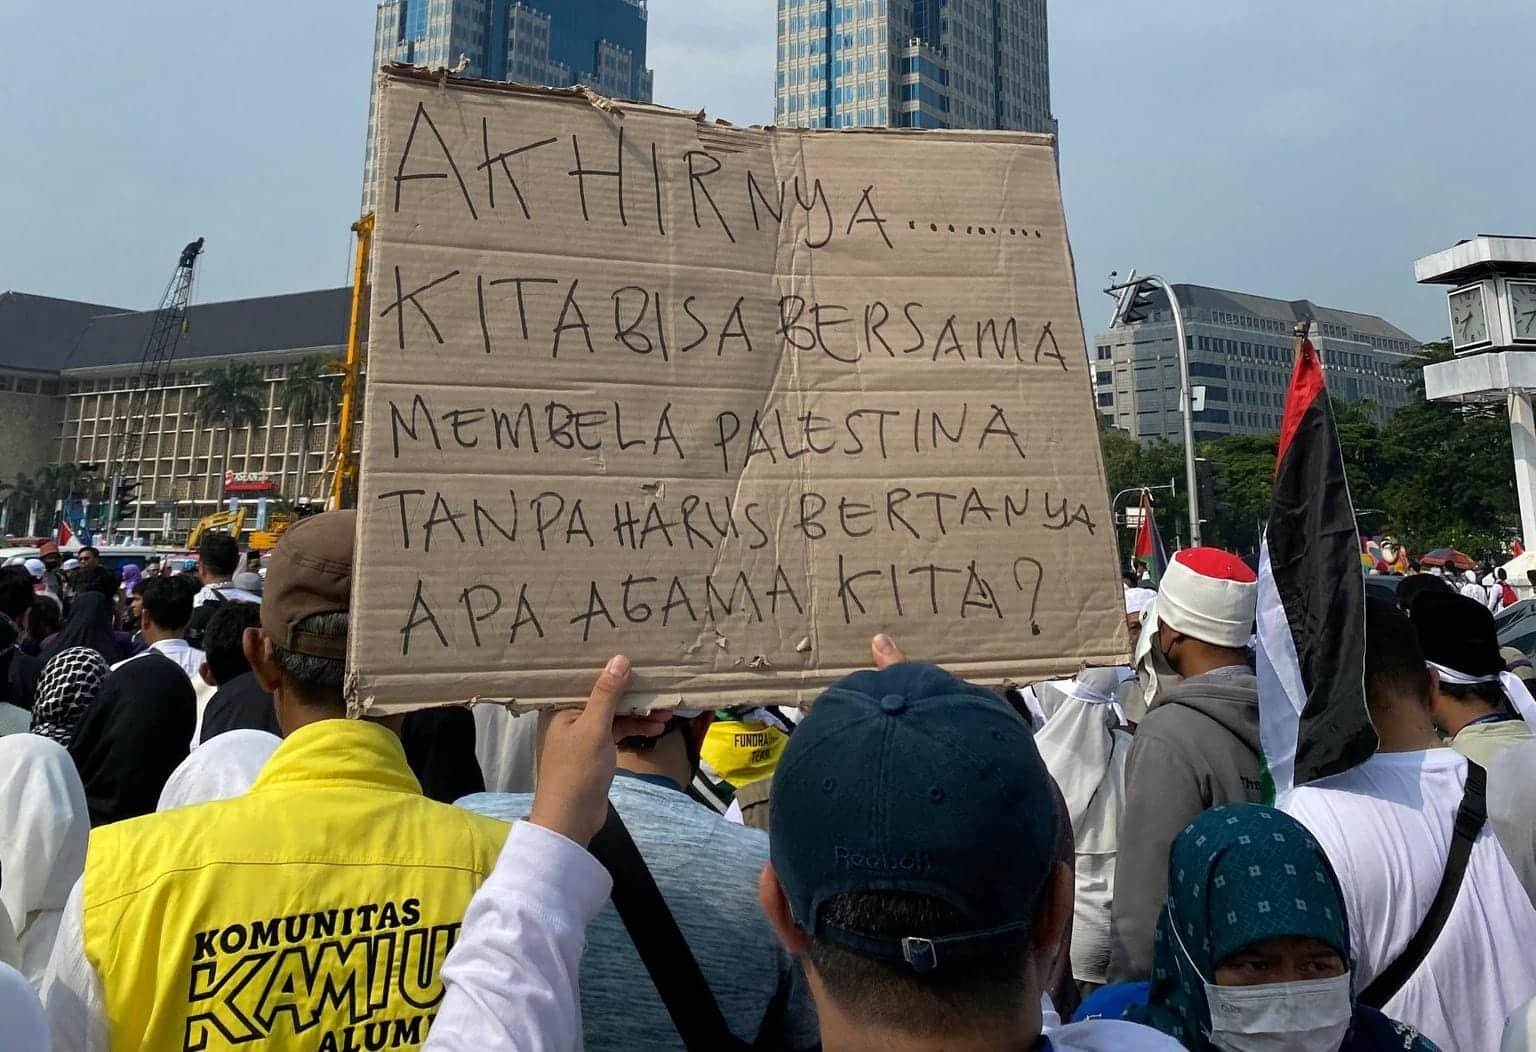 AKHIRNYA.........
KITA BISA BERSAMA
MEMBELA PALESTINA
TANPA HARUS BERTANYA
APA AGAMA KITA?
FUNDRA
KOMUNITAS
KAMIU
ALUM
Reebok